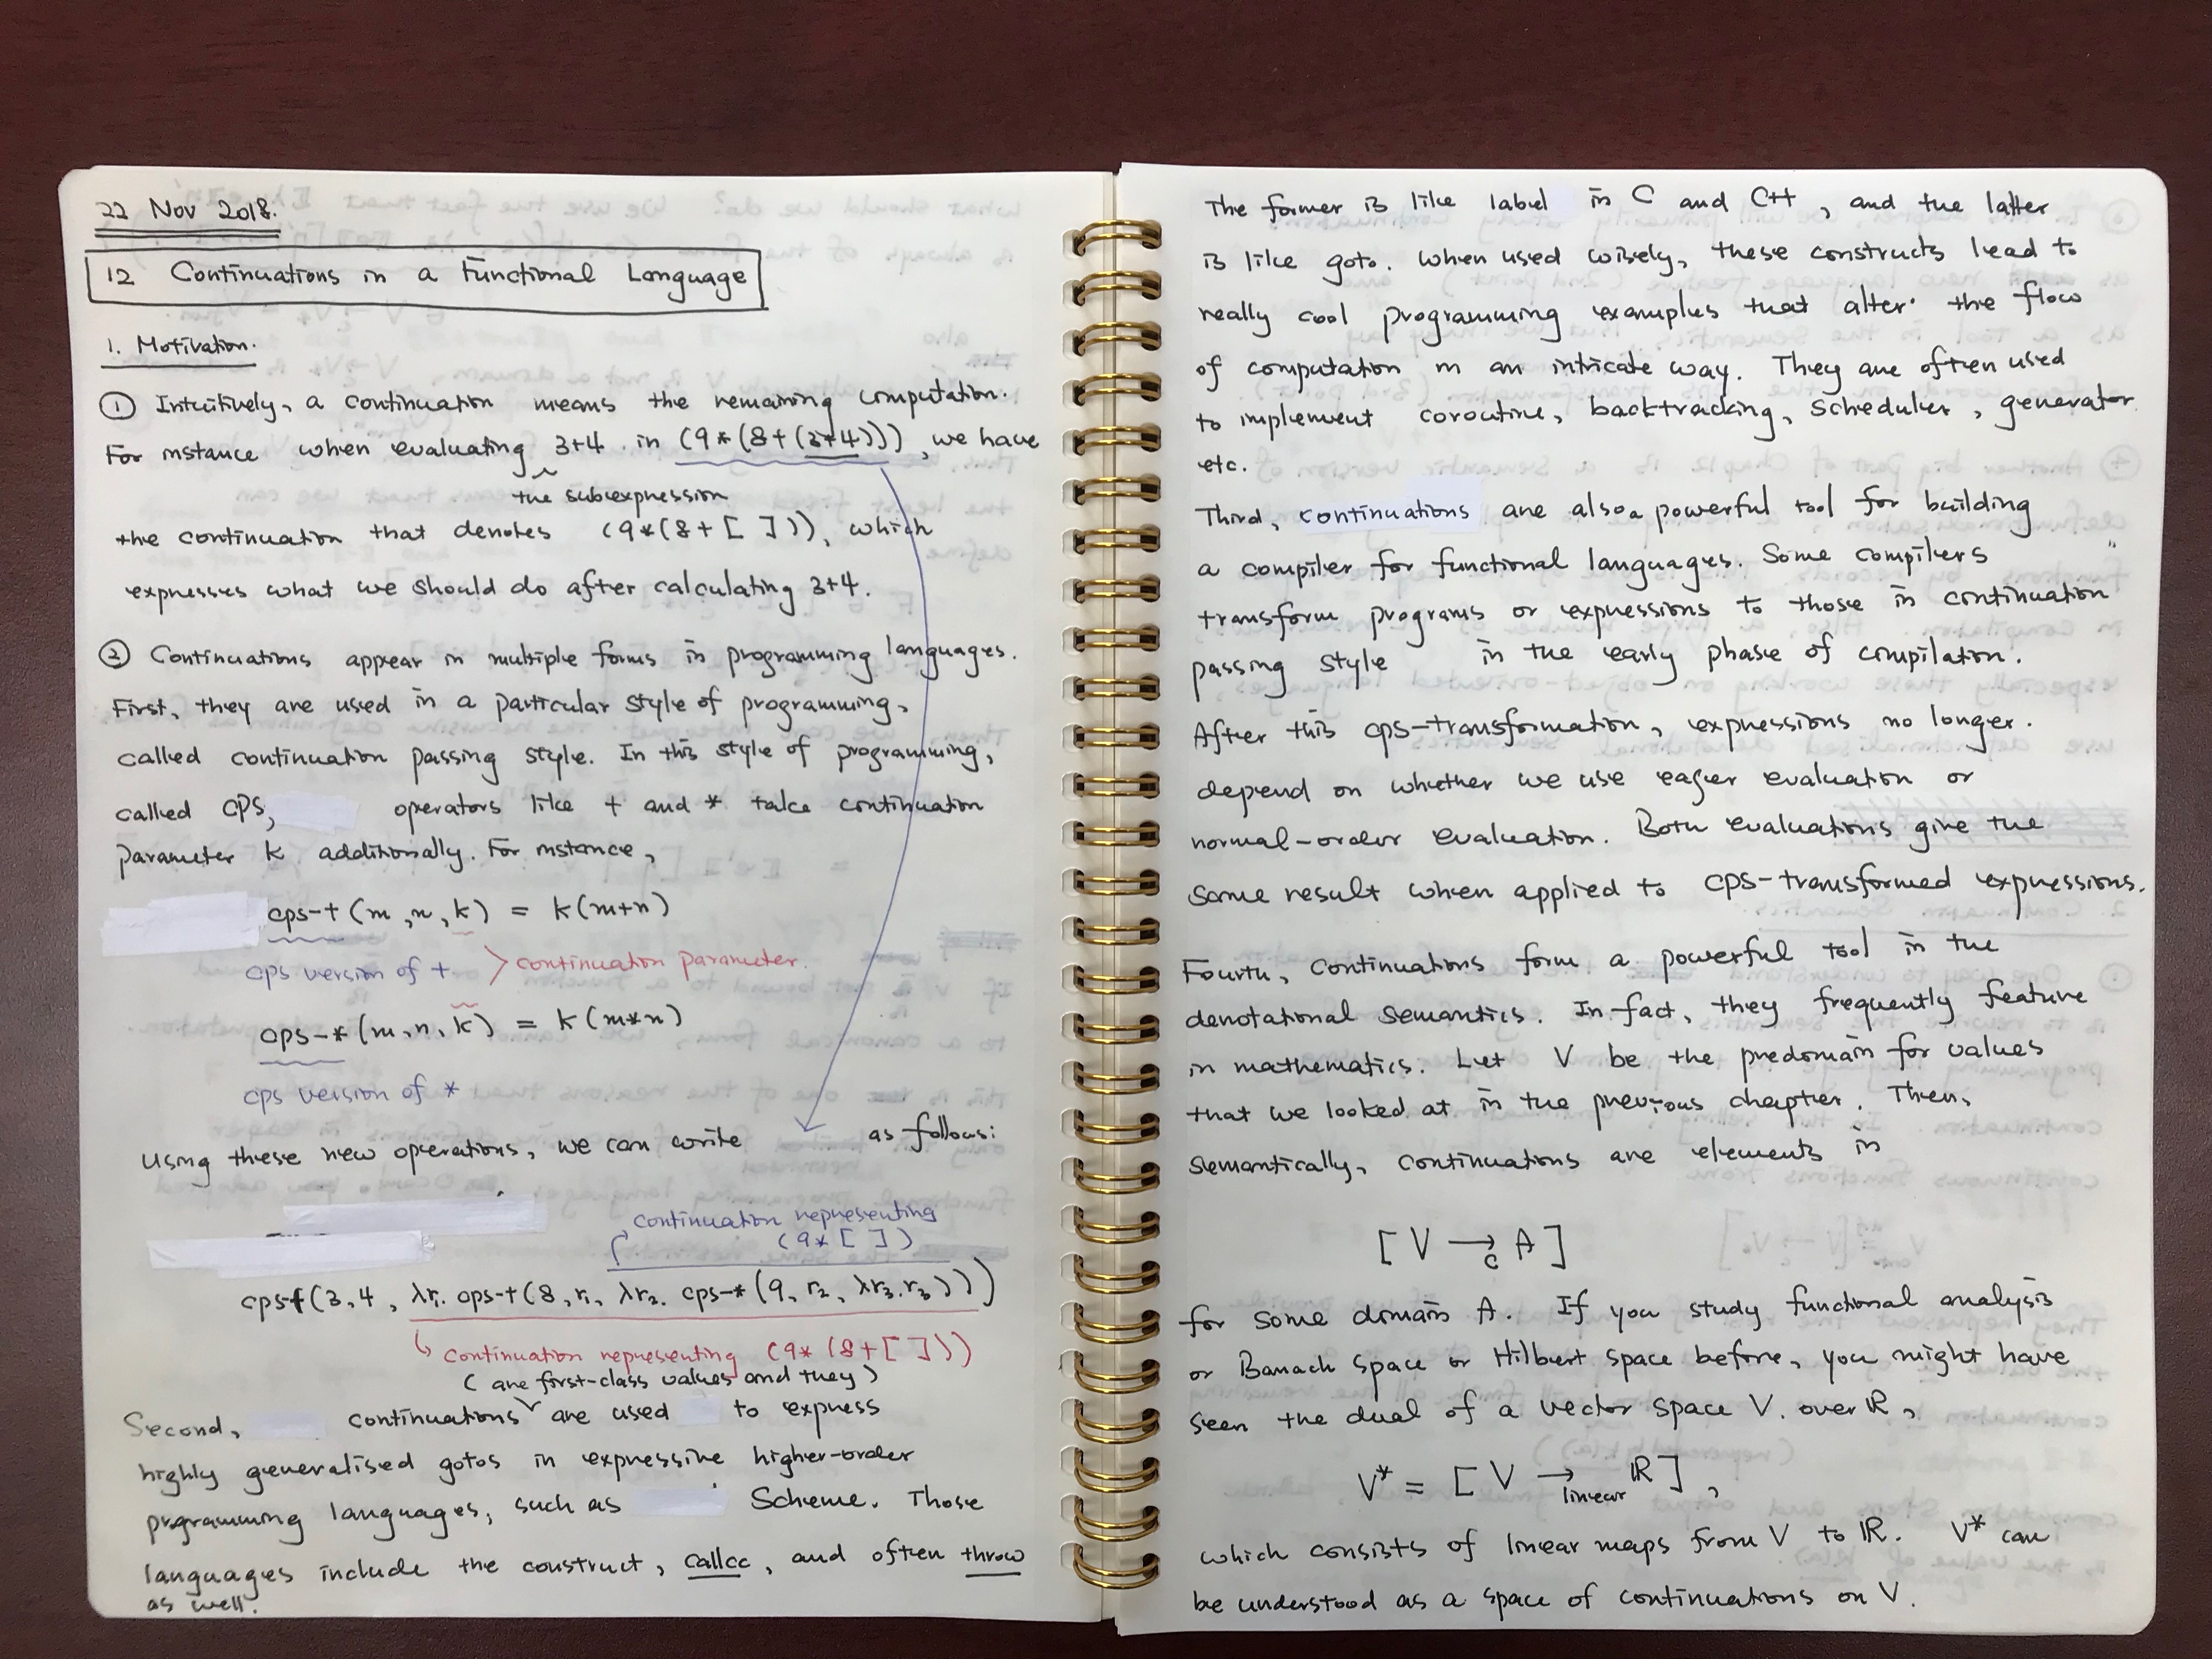 22 Nov 2018.
12 Continuations in a Functional Language
1. Motivation.
① Intuitively, a continuation means the remaining computation.
For instance when evaluating 3+4 in (9*(8+(3+4))), we have
the subexpression
the continuation that denotes (9*(8+[ ])), which
expresses what we should do after calculating 3+4.
② Continuations appear in multiple forms in programming languages.
First, they are used in a particular style of programming,
called continuation passing style. In this style of programming,
called cps, operators like + and * take continuation
parameter k additionally. For instance,
cps-+(m,n,k) = k(m+n)
cps version of + > continuation parameter.
cps-*(m,n,k) = k(m*n)
cps version of *
Using these new operations, we can write as follows:
continuation representing
(9*[ ])
cps-+(3,4, λr₁. cps-+(8,r₁, λr₂. cps-*(9,r₂, λr₃.r₃)))
↳ continuation representing (9*(8+[ ]))
(are first-class values and they)
Second, continuations are used to express
highly generalised gotos in expressive higher-order
prgramming languages, such as Scheme. Those
languages include the construct, callcc, and often throw
as well.
The former is like label in C and C++, and the latter
is like goto. When used wisely, these constructs lead to
really cool programming examples that alter the flow
of computation in an intricate way. They are often used
to implement coroutine, backtracking, scheduler, generator
etc.
Third, continuations are also a powerful tool for building
a compiler for functional languages. Some compilers
transform programs or expressions to those in continuation
passing style in the early phase of compilation.
After this cps-transformation, expressions no longer
depend on whether we use eager evaluation or
normal-order evaluation. Both evaluations give the
same result when applied to cps-transformed expressions.
Fourth, continuations form a powerful tool in the
denotational semantics. In fact, they frequently feature
in mathematics. Let V be the predomain for values
that we looked at in the previous chapter. Then,
semantically, continuations are elements in
[V →c A]
for some domain A. If you study functional analysis
or Banach space or Hilbert space before, you might have
seen the dual of a vector space V over ℝ,
V* = [V →linear ℝ],
which consists of linear maps from V to ℝ. V* can
be understood as a space of continuations on V.